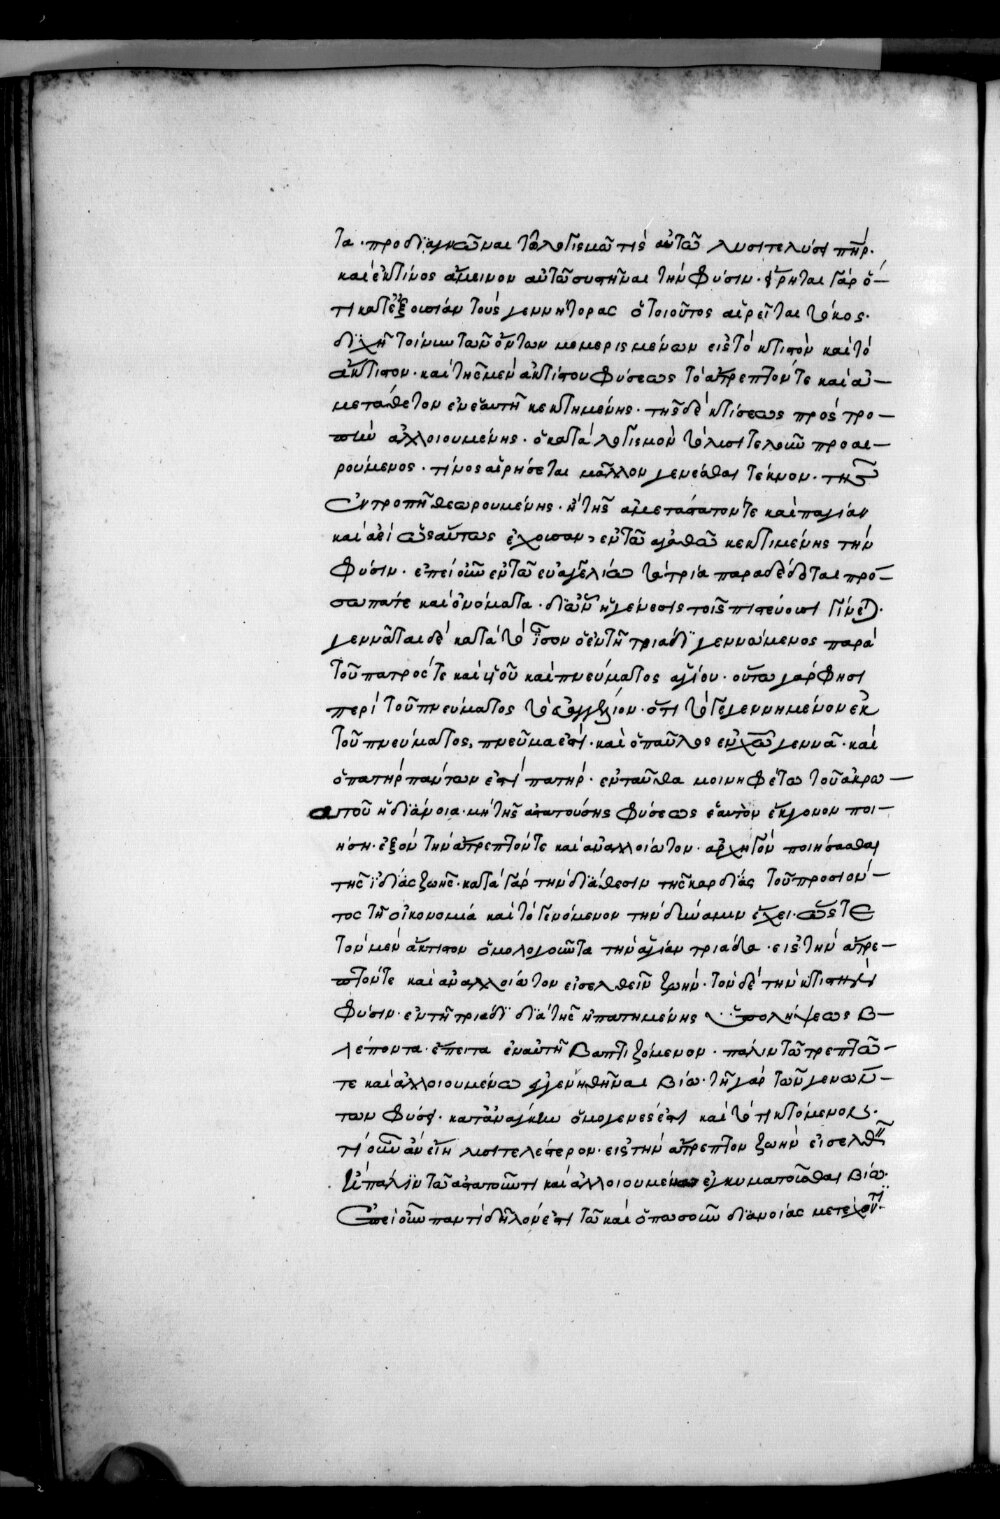 τα· προδιαγνῶναι τῶ λογισμῶ τίς αὐτῶ λυσιτελήσει πατήρ·
καὶ ἐκ τίνος ἄμεινον αὐτῶ συστῆναι τὴν φύσιν· εἴρηται γὰρ ὅ-
τι κατ' ἐξουσίαν τοὺς γεννήτορας ὁ τοιοῦτος αἱρεῖται τόκος·
διχῆ τοίνυν τῶν ὄντων μεμερισμένων εἰς τὸ κτιστὸν καὶ τὸ
ἄκτιστον· καὶ τῆς μὲν ἀκτίστου φύσεως τὸ ἄτρεπτόν τε καὶ ἀ-
μετάθετον ἐν ἑαυτῆ κεκτημένης· τῆς δὲ κτίσεως πρὸς τρο-
πὴν ἀλλοιουμένης· ὁ κατὰ λογισμὸν τὸ λυσιτελοῦν προαι-
ρούμενος· τίνος αἱρήσεται μᾶλλον γενέσθαι τέκνον· τῆς
ἐν τροπῆ θεωρουμένης· ἢ τῆς ἀμετάστατόν τε καὶ παγίαν
καὶ ἀεὶ ὡσαύτως ἔχουσαν ἐν τῶ ἀγαθῶ κεκτιμένης τὴν
φύσιν· ἐπεὶ οὖν ἐν τῶ εὐαγγελίω τὰ τρία παραδέδοται πρό-
σωπά τε καὶ ὀνόματα· δι' ὧν ἡ γένεσις τοῖς πιστεύουσι γίνεται·
γεννᾶται δὲ κατὰ τὸ ἴσον ὁ ἐν τῆ τριάδι γεννώμενος παρὰ
τοῦ πατρός τε καὶ υἱοῦ καὶ πνεύματος ἁγίου· οὕτω γάρ φησι
περὶ τοῦ πνεύματος τὸ εὐαγγέλιον· ὅτι τὸ γεγεννημένον ἐκ
τοῦ πνεύματος, πνεῦμα ἐστί· καὶ ὁ παῦλος ἐν χριστῶ γεννᾶ· καὶ
ὁ πατὴρ πάντων ἐστὶ πατήρ· ἐνταῦθα μοι νηφέτω τοῦ ἀκρω-
ατοῦ ἡ διάνοια· μὴ τῆς ἀστατούσης φύσεως ἑαυτὸν ἔκγονον ποι-
ήση· ἐξὸν τὴν ἄτρεπτόν τε καὶ ἀναλλοίωτον· ἀρχηγὸν ποιήσασθαι
τῆς ἰδίας ζωῆς· κατὰ γὰρ τὴν διάθεσιν τῆς καρδίας τοῦ προσιόν-
τος τῆ οἰκονομία καὶ τὸ γενόμενον τὴν δύναμιν ἔχει· ὥστε
τὸν μὲν ἄκτιστον ὁμολογοῦντα τὴν ἁγίαν τριάδα· εἰς τὴν ἄτρε-
πτόν τε καὶ ἀναλλοίωτον εἰσελθεῖν ζωήν· τὸν δὲ τὴν κτιστὴν
φύσιν· ἐν τῆ τριάδι διὰ τῆς ἠπατημένης ὑπολήψεως β-
λέποντα· ἔπειτα ἐν αὐτῆ βαπτιζόμενον· πάλιν τῶ τρεπτῶ-
τε καὶ ἀλλοιουμένω ἐγγεννηθῆναι βίω· τῆ γὰρ τῶν γεννών-
των φύσει· κατ' ἀνάγκην ὁμογενές ἐστι καὶ τὸ τικτόμενον·
τί οὖν ἂν εἴη λυσιτελέστερον· εἰς τὴν ἄτρεπτον ζωὴν εἰσελθεῖν
ἢ πάλιν τῶ ἀστατοῦντι καὶ ἀλλοιουμένω ἐγκυματοῦσθαι βίω·
Ἐπεὶ οὖν παντὶ δῆλόν ἐστι τῶ καὶ ὁπωσοῦν διανοίας μετέχοντι·